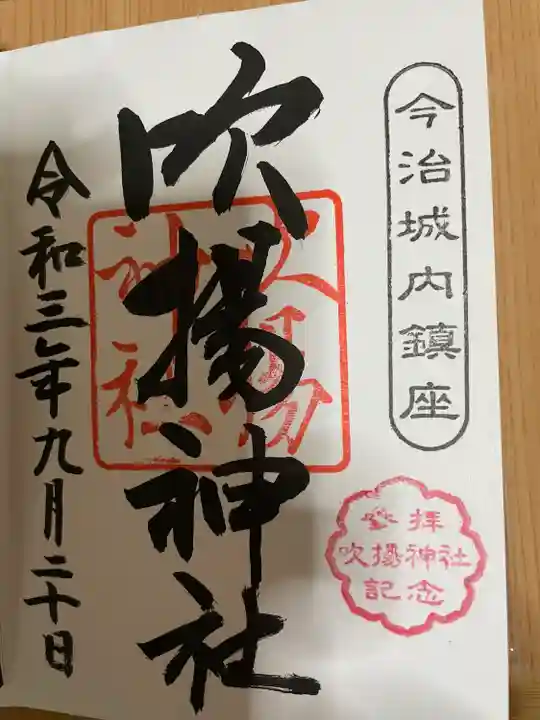 今治城内鎮座
参拝
吹揚神社
記念
吹揚神社
吹揚
神社
令和三年九月二十日